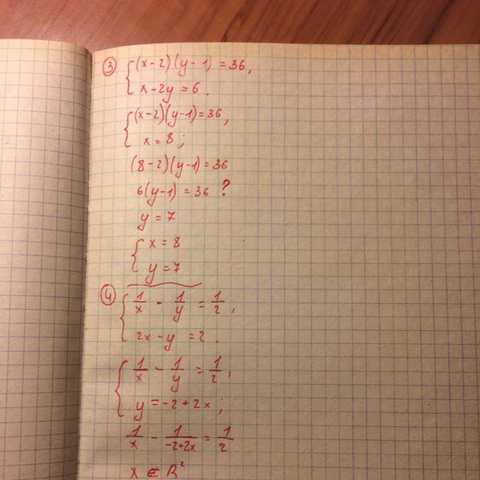 ③ { (x-2)(y-1) = 36,
x - 2y = 6.
{ (x-2)(y-1) = 36,
x = 8;
(8-2)(y-1) = 36
6(y-1) = 36 ?
y = 7
{ x = 8
y = 7
④ { 1/x - 1/y = 1/2,
2x - y = 2.
{ 1/x - 1/y = 1/2,
y = -2 + 2x;
1/x - 1/(-2+2x) = 1/2
x ∉ R²